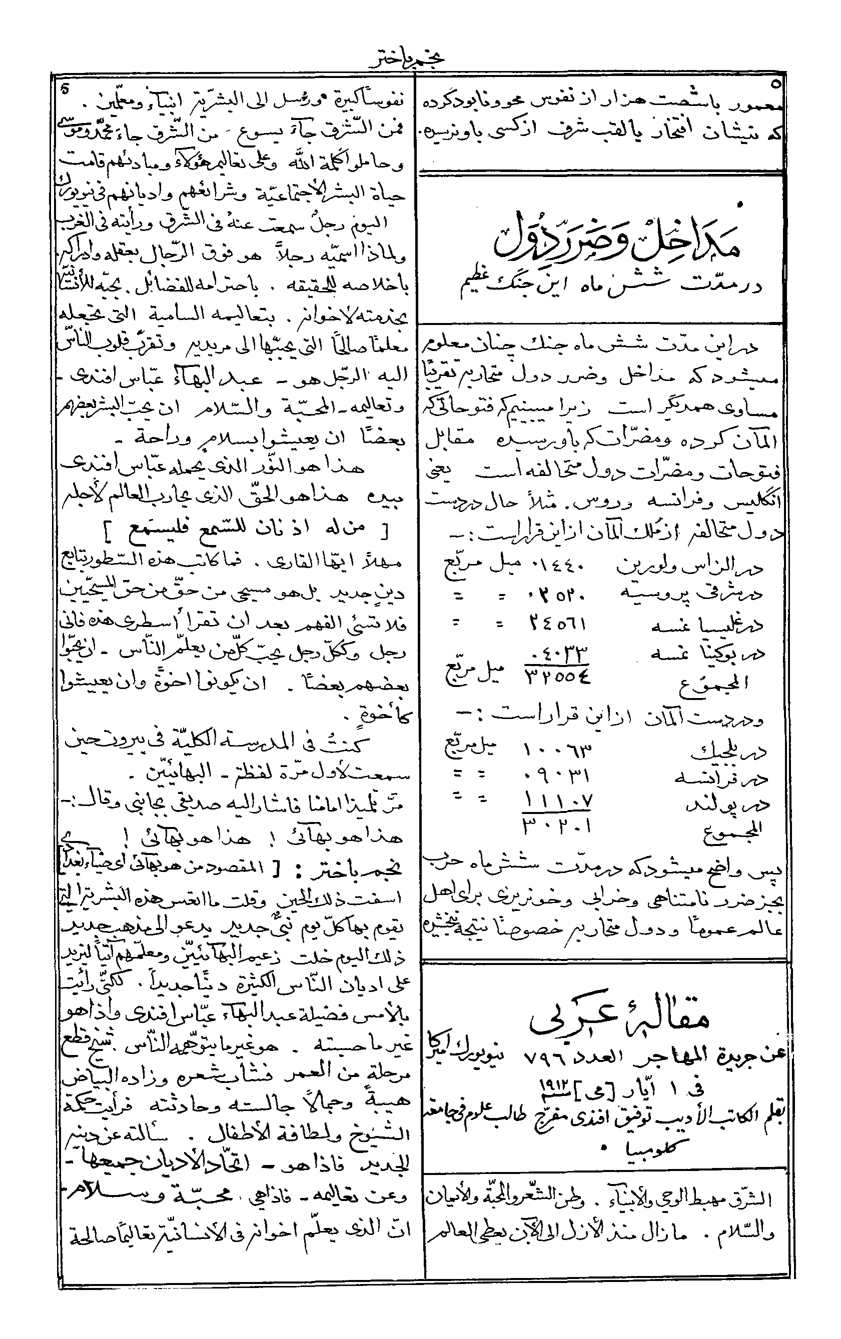 نجم باختر
٥
معمور باشصت هزار از نفوس محو و نابود کرده
که نیشان افتخار یا لقب شرف از کسی باو نرسیده.
مَدَاخِلْ وَضَرَرِ دُوَل
در مدّت شش ماه این جنك عظیم
در این مدّت شش ماه جنك چنان معلوم
میشود که مداخل وضرر دول متحاربه تقریبًا
مساوی همدیگر است زیرا میبینیم که فتوحاتی که
المآن کرده ومضرّات که باو رسیده مقابل
فتوحات ومضرّات دول متخالفه است یعنی
انگلیس وفرانسه وروس. مثلاً حال در دست
دول متخالفه از ملك المآن از این قرار است :—
در الزاس ولورین ٠١٤٤٠ میل مربّع
در شرقی پروسیه ٠٢٥٢٠ = =
در غلیسیا نمسه ٢٤٥٦١ = =
در بوکینا نمسه ٠٤٠٣٣
المجموع ٣٢٥٥٤ میل مربّع
ودر دست المآن از این قرار است :—
در بلجیك ١٠٠٦٣ میل مربّع
در فرانسه ٠٩٠٣١ = =
در پولند ١١١٠٧ = =
المجموع ٣٠٢٠١
پس واضح میشود که در مدّت شش ماه حرب
بجز ضرر نامتناهی وخرابی وخونریزی برای اهل
عالم عمومًا و دول متحاربه خصوصًا نتیجه نبخشیده
مقالهٔ عَرَبی
عن جریدة المهاجر العدد ٧٩٦ نیویورك امیرکا
فی ١ ایّار [می] سنة ١٩١٢
بقلم الکاتب الأدیب توفیق افندی مفرّج طالب علوم فی جامعة
کلومبیا .
الشرق مهبط الوحی والأنبیاء . وطن الشّعر والمحبّة والأیمان
والسّلام . ما زال منذ الأزل الی الآن یعطی العالم
6
نفوسًا کبیرة ویرسل الی البشریّة انبیاء ومعلّمین .
فمن الشّرق جاء یسوع . من الشّرق جاء محمّد وموسی
وحاملوا کلمة الله وعلی تعالیم هؤلاء ومبادئهم قامت
حیاة البشر الاجتماعیّة وشرائعهم وادیانهم فی نیویورك
الیوم رجلٌ سمعت عنهُ فی الشّرق ورأیته فی الغرب
ولماذا اسمّیه رجلاً هو فوق الرّجال بعقله وادراکه.
باخلاصه للحقیقه . باحترامه للفضائل . بحبّه للأنسانیّة
بخدمته لاخوانه . بتعالیمه السامیة التی تجعله
معلمًا صالحًا التی یحبّبها الی مریدیه وتقرّب قلوب النّاس
الیه الرّجل هو - عبد البهاء عبّاس افندی -
وتعالیمه - المحبّة والسّلام ان یحبّ البشر بعضهم
بعضًا ان یعیشوا بسلامٍ وراحة -
هذا هو النّور الذی یحمله عبّاس افندی
بیده هذا هو الحقّ الذی یحارب العالم لأجله
[ من له اذنان للسّمع فلیسمَع ]
مهلاً ایّها القاری . فما کاتب هذه السّطور بتابع
دین جدید بل هو مسیحی من حقٍّ من حق المسیحیّین
فلا تسئی الفهم بعد ان تقرأ أسطری هذه فانی
رجل وککلّ رجل یحبّ کلّ من یعلّم النّاس - ان یحبّوا
بعضهم بعضًا . ان یکونوا اخوةً وان یعیشوا
کأخوةٍ .
کنتُ فی المدرسة الکلیّة فی بیروت حین
سمعت لأول مرّة لفظة - البهائیّین .
مرّ تلمیذ امامنا فاشار الیه صدیقی بجانبی وقال :-
هذا هو بهائیٌ ! هذا هو بهائیٌ !
نجم باختر : [ المقصود من هو بهائی ای ضیاء بغدادی]
اسفت ذلك الحین وقلت ما اتعس هذه البشریّة الّتی
یقوم بها کلّ یوم نبیٌّ جدید یدعو الی مذهب جدید
ذلك الیوم خلت زعیم البهائیّین ومعلّمهم آتیًا لیزید
علی ادیان النّاس الکثیرة دینًا جدیداً . لکنّی رأیت
بالأمس فضیلة عبد البهاء عبّاس افندی واذا هو
غیر ما حسبته . هو غیر ما یتوهّمه النّاس . شیخ قطع
مرحلة من العمر فشاب شعره وزاده البیاض
هیبةً وجمالاً جالسته وحادثته فرأیت حکمة
الشّیوخ ولطافة الأطفال . سألته عن دینه
الجدید فاذا هو - اتحّاد الأدیان جمیعها -
وعن تعالیمه - فاذا هی محبّة وسلام -
انّ الذی یعلّم اخوانه فی الأنسانیّة تعالیمًا صالحة